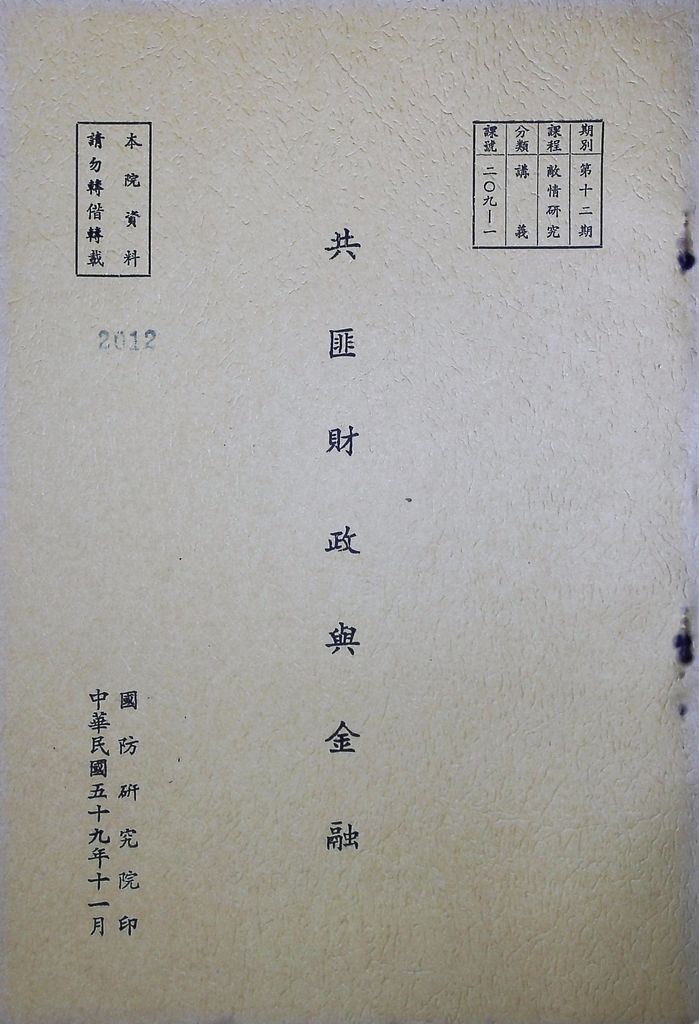 期別 第十二期
課程 敵情研究
分類 講義
課號 二〇九—一
共匪財政與金融
本院資料
請勿轉借轉載
2012
國防研究院印
中華民國五十九年十一月